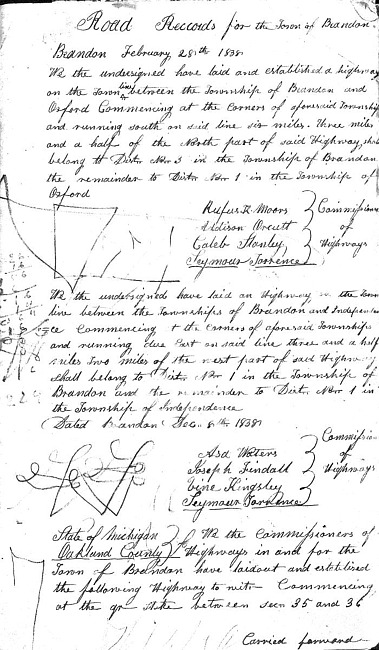 Road Reccords for the Town of Brandon
Brandon February 28th 1838
We the undersigned have laid and established a highway
on the Town line between the Township of Brandon and
Oxford Commencing at the Corners of aforesaid Township
and running south on said line six miles. three miles
and a half of the North part of said Highway, shall
belong to Distr. Nbr 3 in the Township of Brandon
the remainder to Distr Nbr 1 in the Township of
Oxford
Rufus R. Moors
Addison Orcutt
Caleb Stanley
Seymour Torrence
Commissioners
of
Highways
We the undersigned have laid an Highway on the Town
line between the Townships of Brandon and Independen
ce Commencing at the Corners of aforesaid Townships
and running due East on said line three and a half
miles two miles of the west part of said Highway
shall belong to Distr. Nbr 1 in the Township of
Brandon and the remainder to Distr. Nbr 1 in
the Township of Independence
Dated Brandon Dec. 8th 1838
Asa Waters
Joseph Tindall
Vine Kingsley
Seymour Torrence
Commissioners
of
Highways
State of Michigan
Oakland County
We the Commissioners of
Highways in and for the
Town of Brandon have laidout and establised
the following Highway to wit- Commencing
at the qr stake between secn 35 and 36
Carried forward